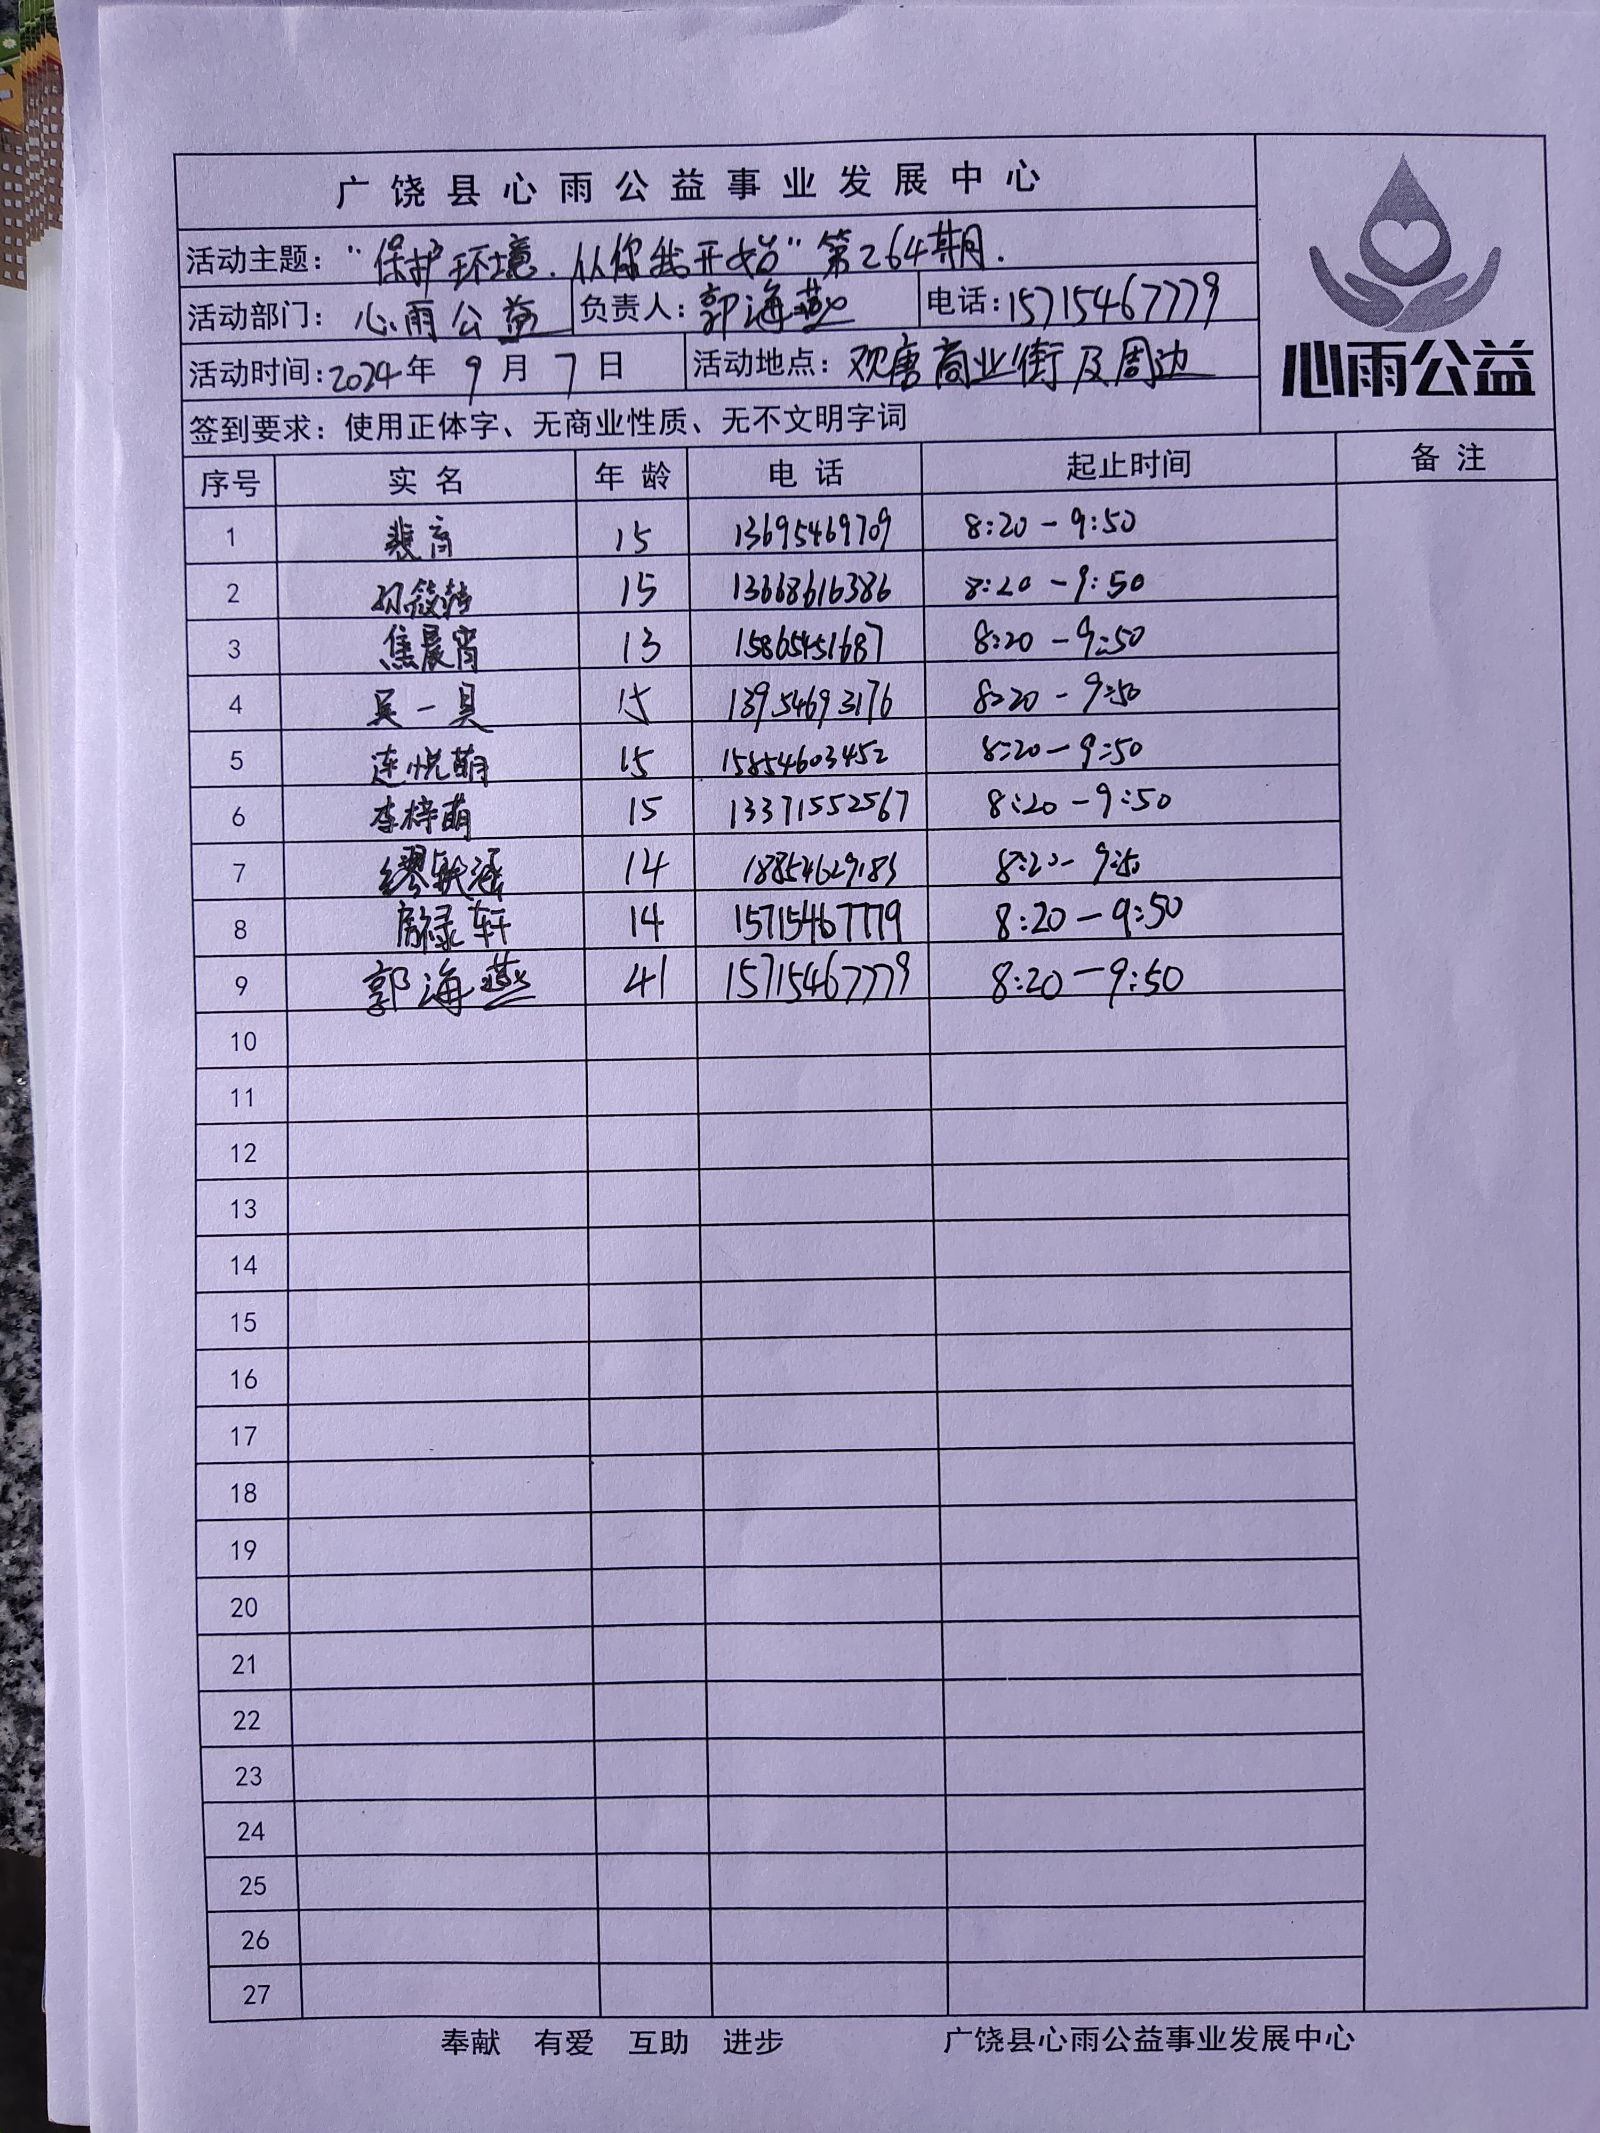 广饶县心雨公益事业发展中心
活动主题：“保护环境.从你我开始”第264期.
活动部门：心雨公益 负责人：郭海燕 电话：15715467779
活动时间：2024年9月7日 活动地点：观唐商业街及周边
签到要求：使用正体字、无商业性质、无不文明字词
心雨公益
序号 实名 年龄 电话 起止时间 备注
1 15 13695469709 8:20-9:50
2 15 13668616386 8:20-9:50
3 焦晨宵 13 15865451687 8:20-9:50
4 吴一具 15 13954693176 8:20-9:50
5 连悦萌 15 15854603452 8:20-9:50
6 李梓萌 15 13371552567 8:20-9:50
7 14 18854629183 8:20-9:50
8 房禄轩 14 15715467779 8:20-9:50
9 郭海燕 41 15715467779 8:20-9:50
10
11
12
13
14
15
16
17
18
19
20
21
22
23
24
25
26
27
奉献 有爱 互助 进步 广饶县心雨公益事业发展中心